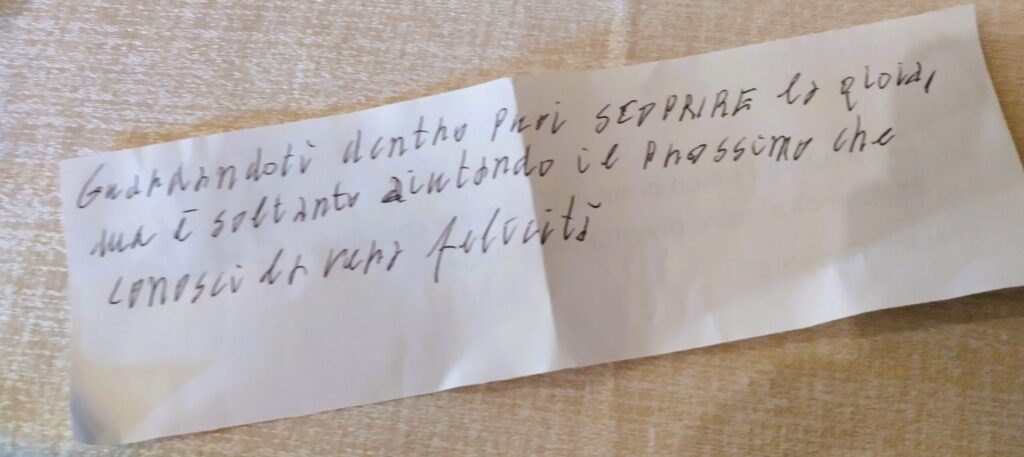 Guardandoti dentro puoi SCOPRIRE la gioia,
ma è soltanto aiutando il prossimo che
conosci la vera felicità